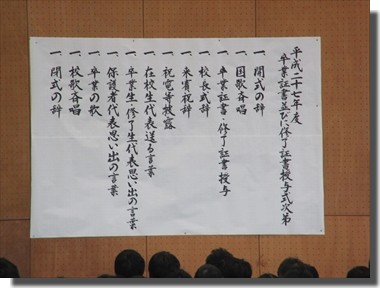 平成二十七年度
卒業証書並びに修了証書授与式次第
一、開式の辞
一、国歌斉唱
一、卒業証書・修了証書授与
一、校長式辞
一、来賓祝辞
一、祝電等披露
一、在校生代表送る言葉
一、卒業生・修了生代表思い出の言葉
一、保護者代表思い出の言葉
一、卒業の歌
一、校歌斉唱
一、閉式の辞